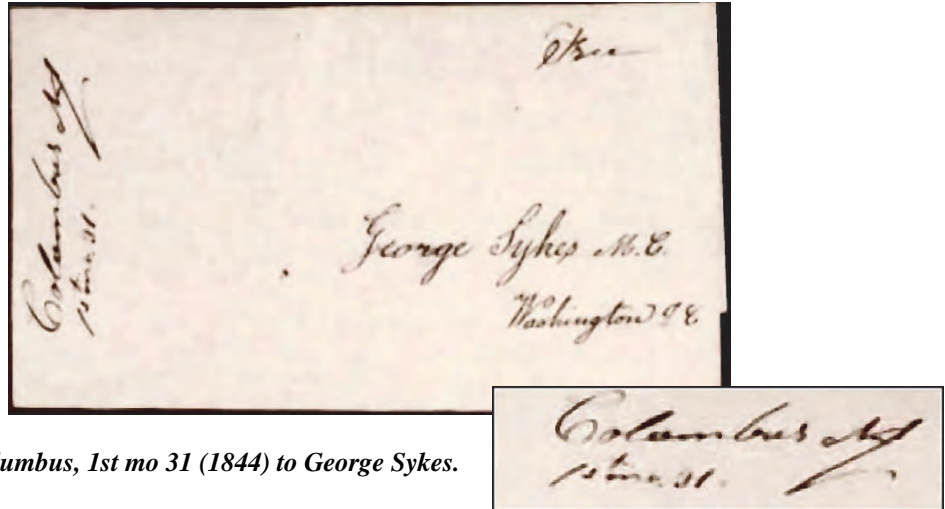 Free
Columbus NJ
1st mo. 31.
George Sykes M.C.
Washington D C
umbus, 1st mo 31 (1844) to George Sykes.
Columbus NJ
1st mo. 31.